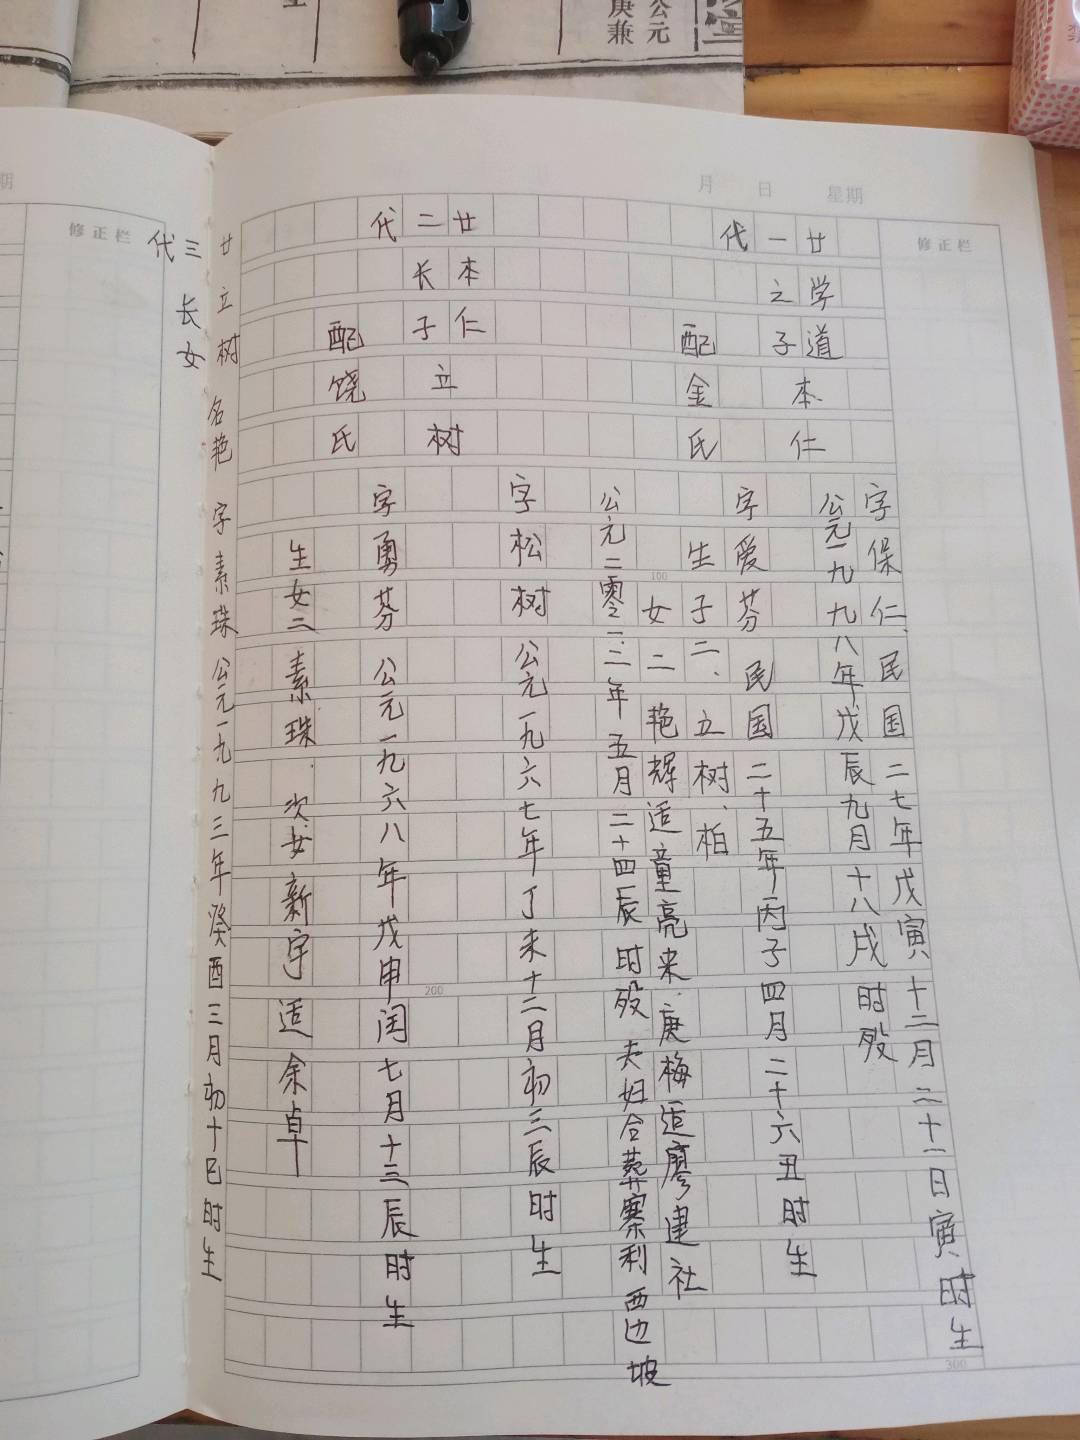 公元
庚兼
月 日 星期
修正栏
廿一代
学道
之子
本仁
字保仁、民国二七年戊寅十二月二十一日寅时生
公元一九九八年戊辰九月十八戌时殁
配金氏
字爱芬 民国二十五年丙子四月二十六丑时生
生子二、立树、柏
女二 艳辉适童亮来、庚梅适廖建社
公元二零一二年五月二十四辰时殁 夫妇合葬寨利西边坡
廿二代
本仁
长子
立树
字松树 公元一九六七年丁未十二月初三辰时生
配饶氏
字勇芬 公元一九六八年戊申闰七月十三辰时生
生女二 素珠 次女新宇适余卓
100
200
300
廿三代
立树
长女
名艳 字素珠 公元一九九三年癸酉三月初十巳时生
修正栏
期